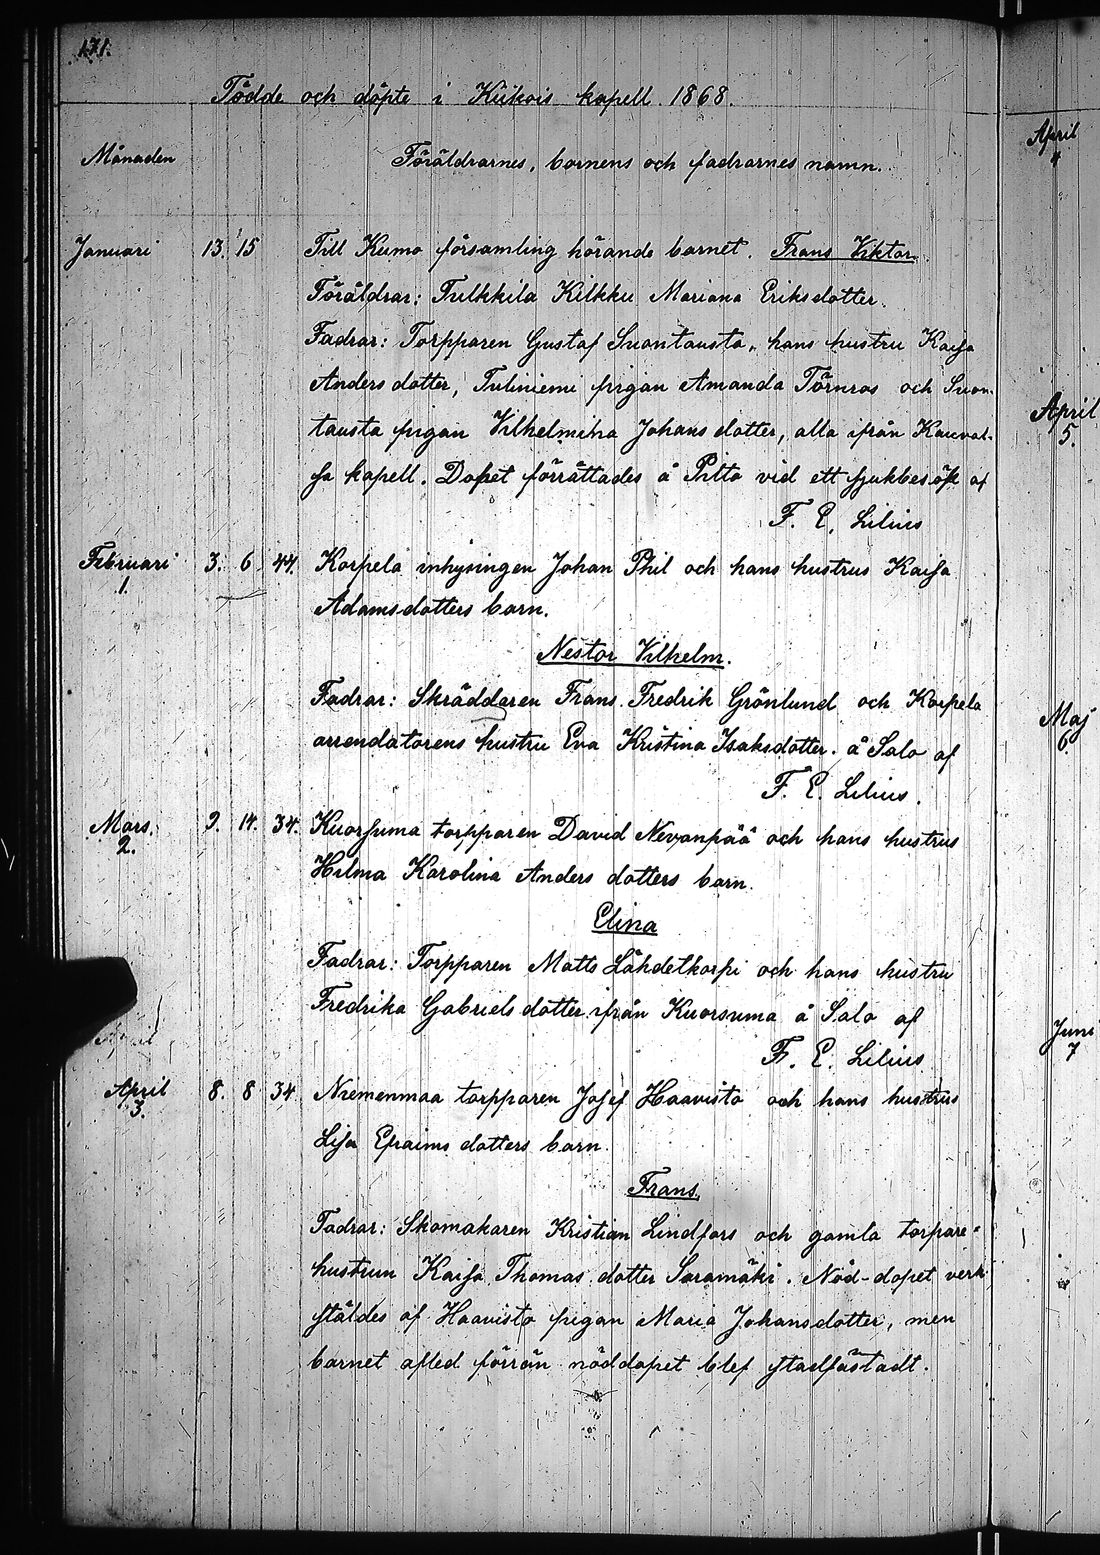 171.
Födde och döpte i Kiikois kapell 1868.
Månaden Föräldrarnes, barnens och fadrarnes namn.
Januari 13. 15 Till Kumo församling hörande barnet. Frans Viktor
Föräldrar: Tulkkila Kilkku Mariana Eriksdotter.
Fadrar: Torpparen Gustaf Suontausta, hans hustru Kaisa
Anders dotter, Tuliniemi pigan Amanda Törnros och Suon-
tausta pigan Vilhelmina Johans dotter, alla ifrån Kauvat-
sa kapell. Dopet förrättades å Pitto vid ett sjukbesök af
F. E. Lilius
Februari 3. 6 44. Korpela inhysingen Johan Phil och hans hustrus Kaisa
1. Adamsdotters barn.
Nestor Vilhelm.
Fadrar: Skräddaren Frans Fredrik Grönlund och Korpela
arrendatorens hustru Eva Kristina Isaksdotter. å Salo af
F. E. Lilius.
Mars. 9. 14. 34. Kuorsuma torpparen David Nevanpää och hans hustrus
2. Hilma Karolina Anders dotters barn.
Elina
Fadrar: Torpparen Matts Lähdetkorpi och hans hustru
Fredrika Gabriels dotter ifrån Kuorsuma å Salo af
F. E. Lilius
April 8. 8 34. Niemenmaa torpparen Josef Haavisto och hans hustrus
3. Lisa Epraims dotters barn.
Frans.
Fadrar: Skomakaren Kristian Lindfors och gamla torpare-
hustrun Kaisa Thomas dotter Saramäki. Nöd-dopet verk-
stäldes af Haavisto pigan Maria Johansdotter, men
barnet afled förrän nöddopet blef stadfästadt.
April
4
April
5.
Maj
6.
Juni
7